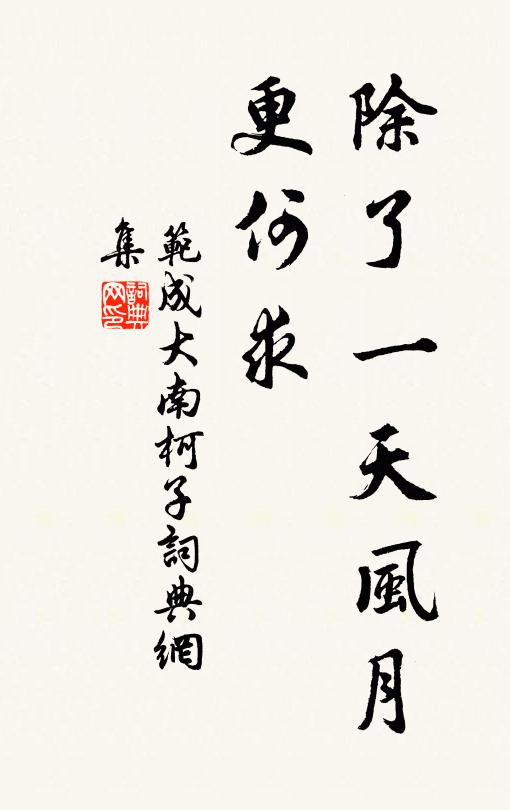 除了一天風月
更何求
範成大南柯子詞典網
集
詞典
网印